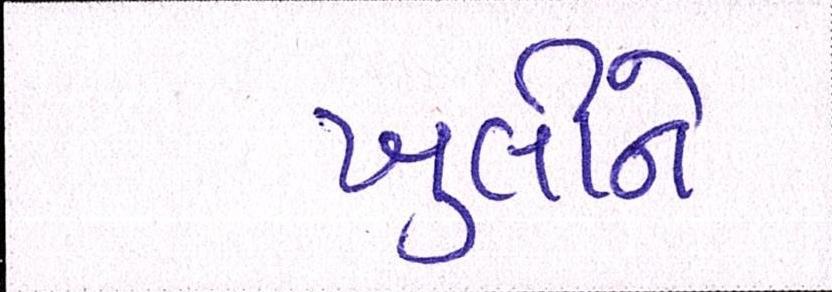 ખુલીને